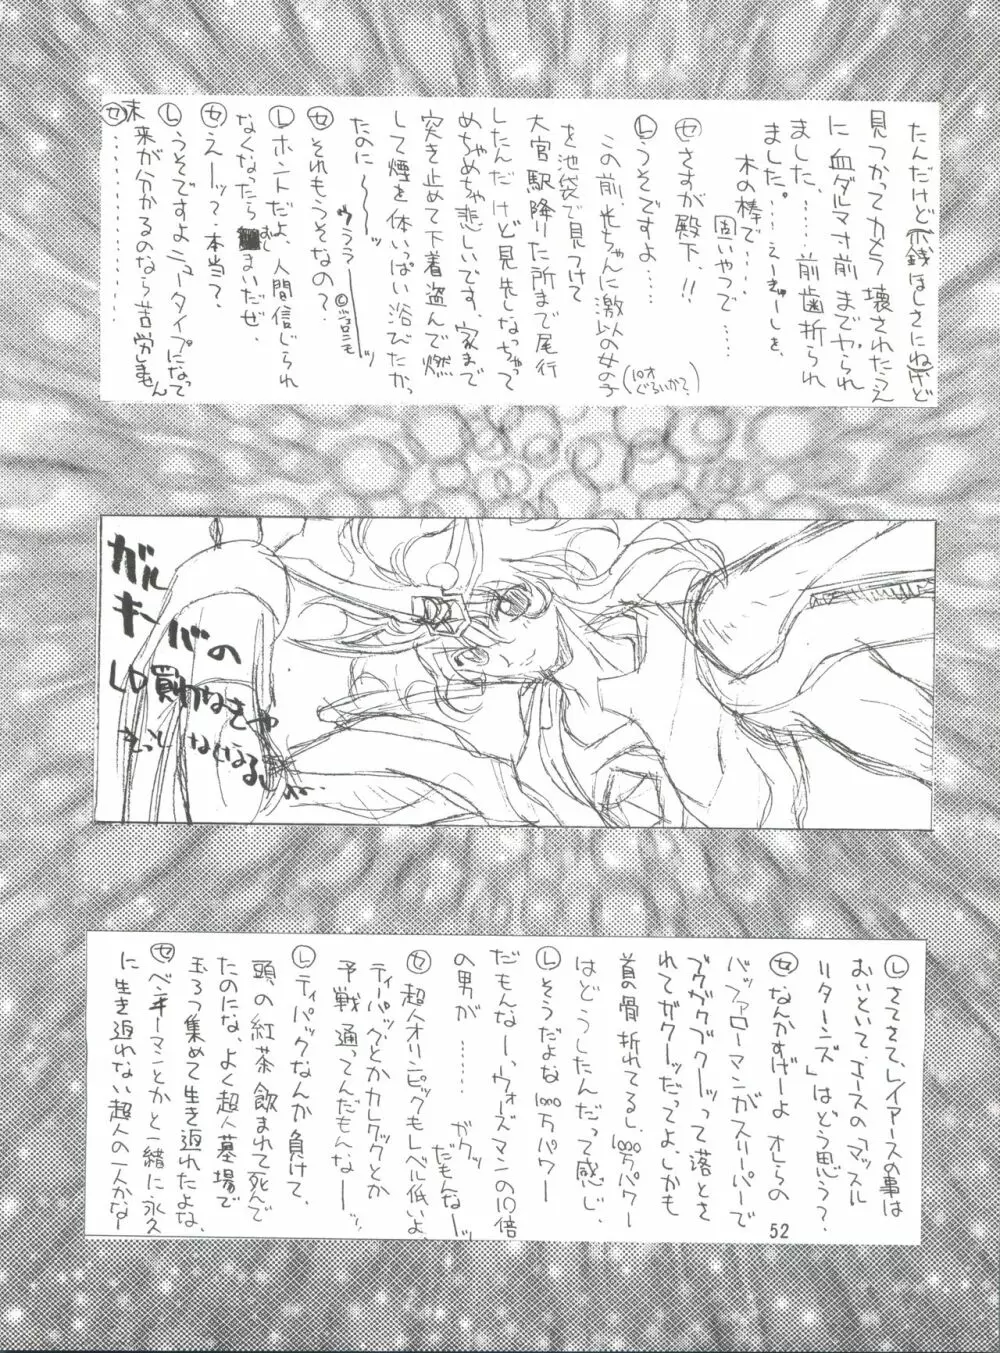 たんだけど(小銭ほしさにねけど
見つかってカメラ壊されたうえ
に血ダルマ寸前までヤられ
ました、……前歯折られ
ました。…えーぎゅーしを、
木の棒で…
固いやつで……
セ さすが殿下!!
L うそですよ…
この前、光ちゃんに激似の女の子
(10才ぐらいかな?)
を池袋で見つけて
大宮駅降りた所まで尾行
したんだけど見失しなっちゃって
めちゃめちゃ悲しいです、家まで
突き止めて下着盗んで燃
して煙を体いっぱい浴びたかっ
たのに〜〜〜ッ
セ それもうそなの?
L ホントだよ、人間信じられ
なくなったらおしまいだぜ
セ えーッ?本当?
L うそですよニュータイプになって
未来が分かるのなら苦労しません
セ …………
ガルキーバの
LD買わなきゃ
きっとなくなるし…
L さてさて、レイアースの事は
おいといて、エースの「マッスル
リターンズ」はどう思う?
セ なんかすげーよ オレらの
バッファローマンがスリーパーで
ブクブクブクーッって落とさ
れてガクーッだってよ、しかも
首の骨折れてるし、1000万パワー
はどうしたんだって感じ、
L そうだよな1000万パワー
だもんなー、ウォーズマンの10倍
の男が……ガクッ
だもんなーッ
セ 超人オリンピックもレベル低いよ
ティーパックとかカレクックとか
予戦通ってんだもんなーッ
L ティーパックなんか負けて、
頭の紅茶飲まれて死んで
たのにな、よく超人墓場で
玉3つ集めて生き返れたよな、
セ ベンキーマンとかと一緒に永久
に生き返れない超人の一人かなー
52